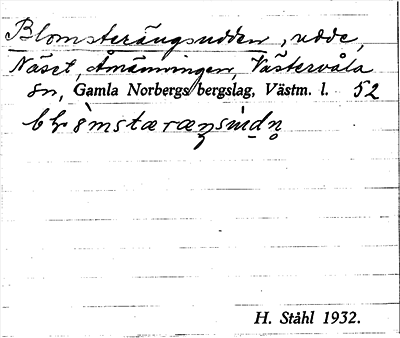 Blomsterängsudden, udde,
Näset, Åmänningen, Västervåla
sn, Gamla Norbergs bergslag, Västm. l. 52
H. Ståhl 1932.